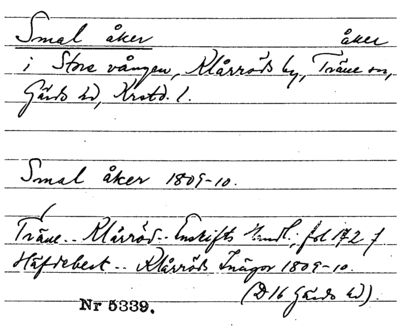 Smal åker åker
i Stora vången, Klårröds by, Träne sn,
Gärds hd, Krstd. l.
Smal åker 1809-10.
Träne.. Klårröd.. Enskifts Handl.; fol 172 f
Häfdebeskr.. Klårröds Inägor 1809-10.
(D16 Gärds hd).
Nr 5339.